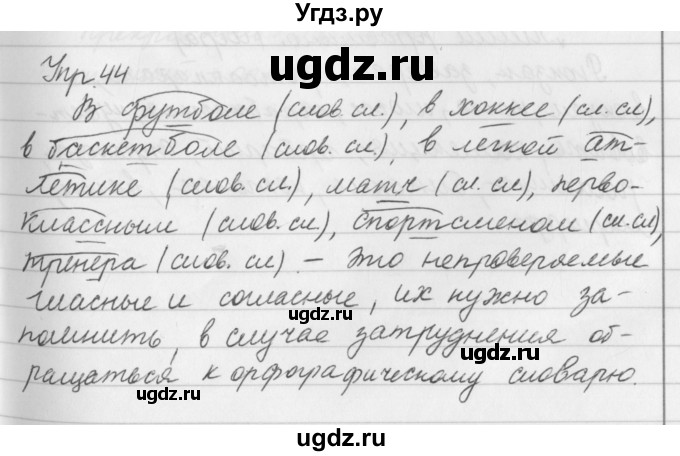 Угдз.ру
ugdz.ru
Упр. 44
В футболе (слов. сл.), в хоккее (сл. сл),
в баскетболе (слов. сл.), в лёгкой ат-
летике (слов. сл.), матч (сл. сл), перво-
классным (слов. сл.), спортсменом (сл. сл),
тренера (слов. сл) – это непроверяемые
гласные и согласные, их нужно за-
помнить, в случае затруднения об-
ращаться к орфографическому словарю.
ugdz.ru
ugdz.ru
ugdz.ru
ugdz.ru
ugdz.ru
ugdz.ru
ugdz.ru